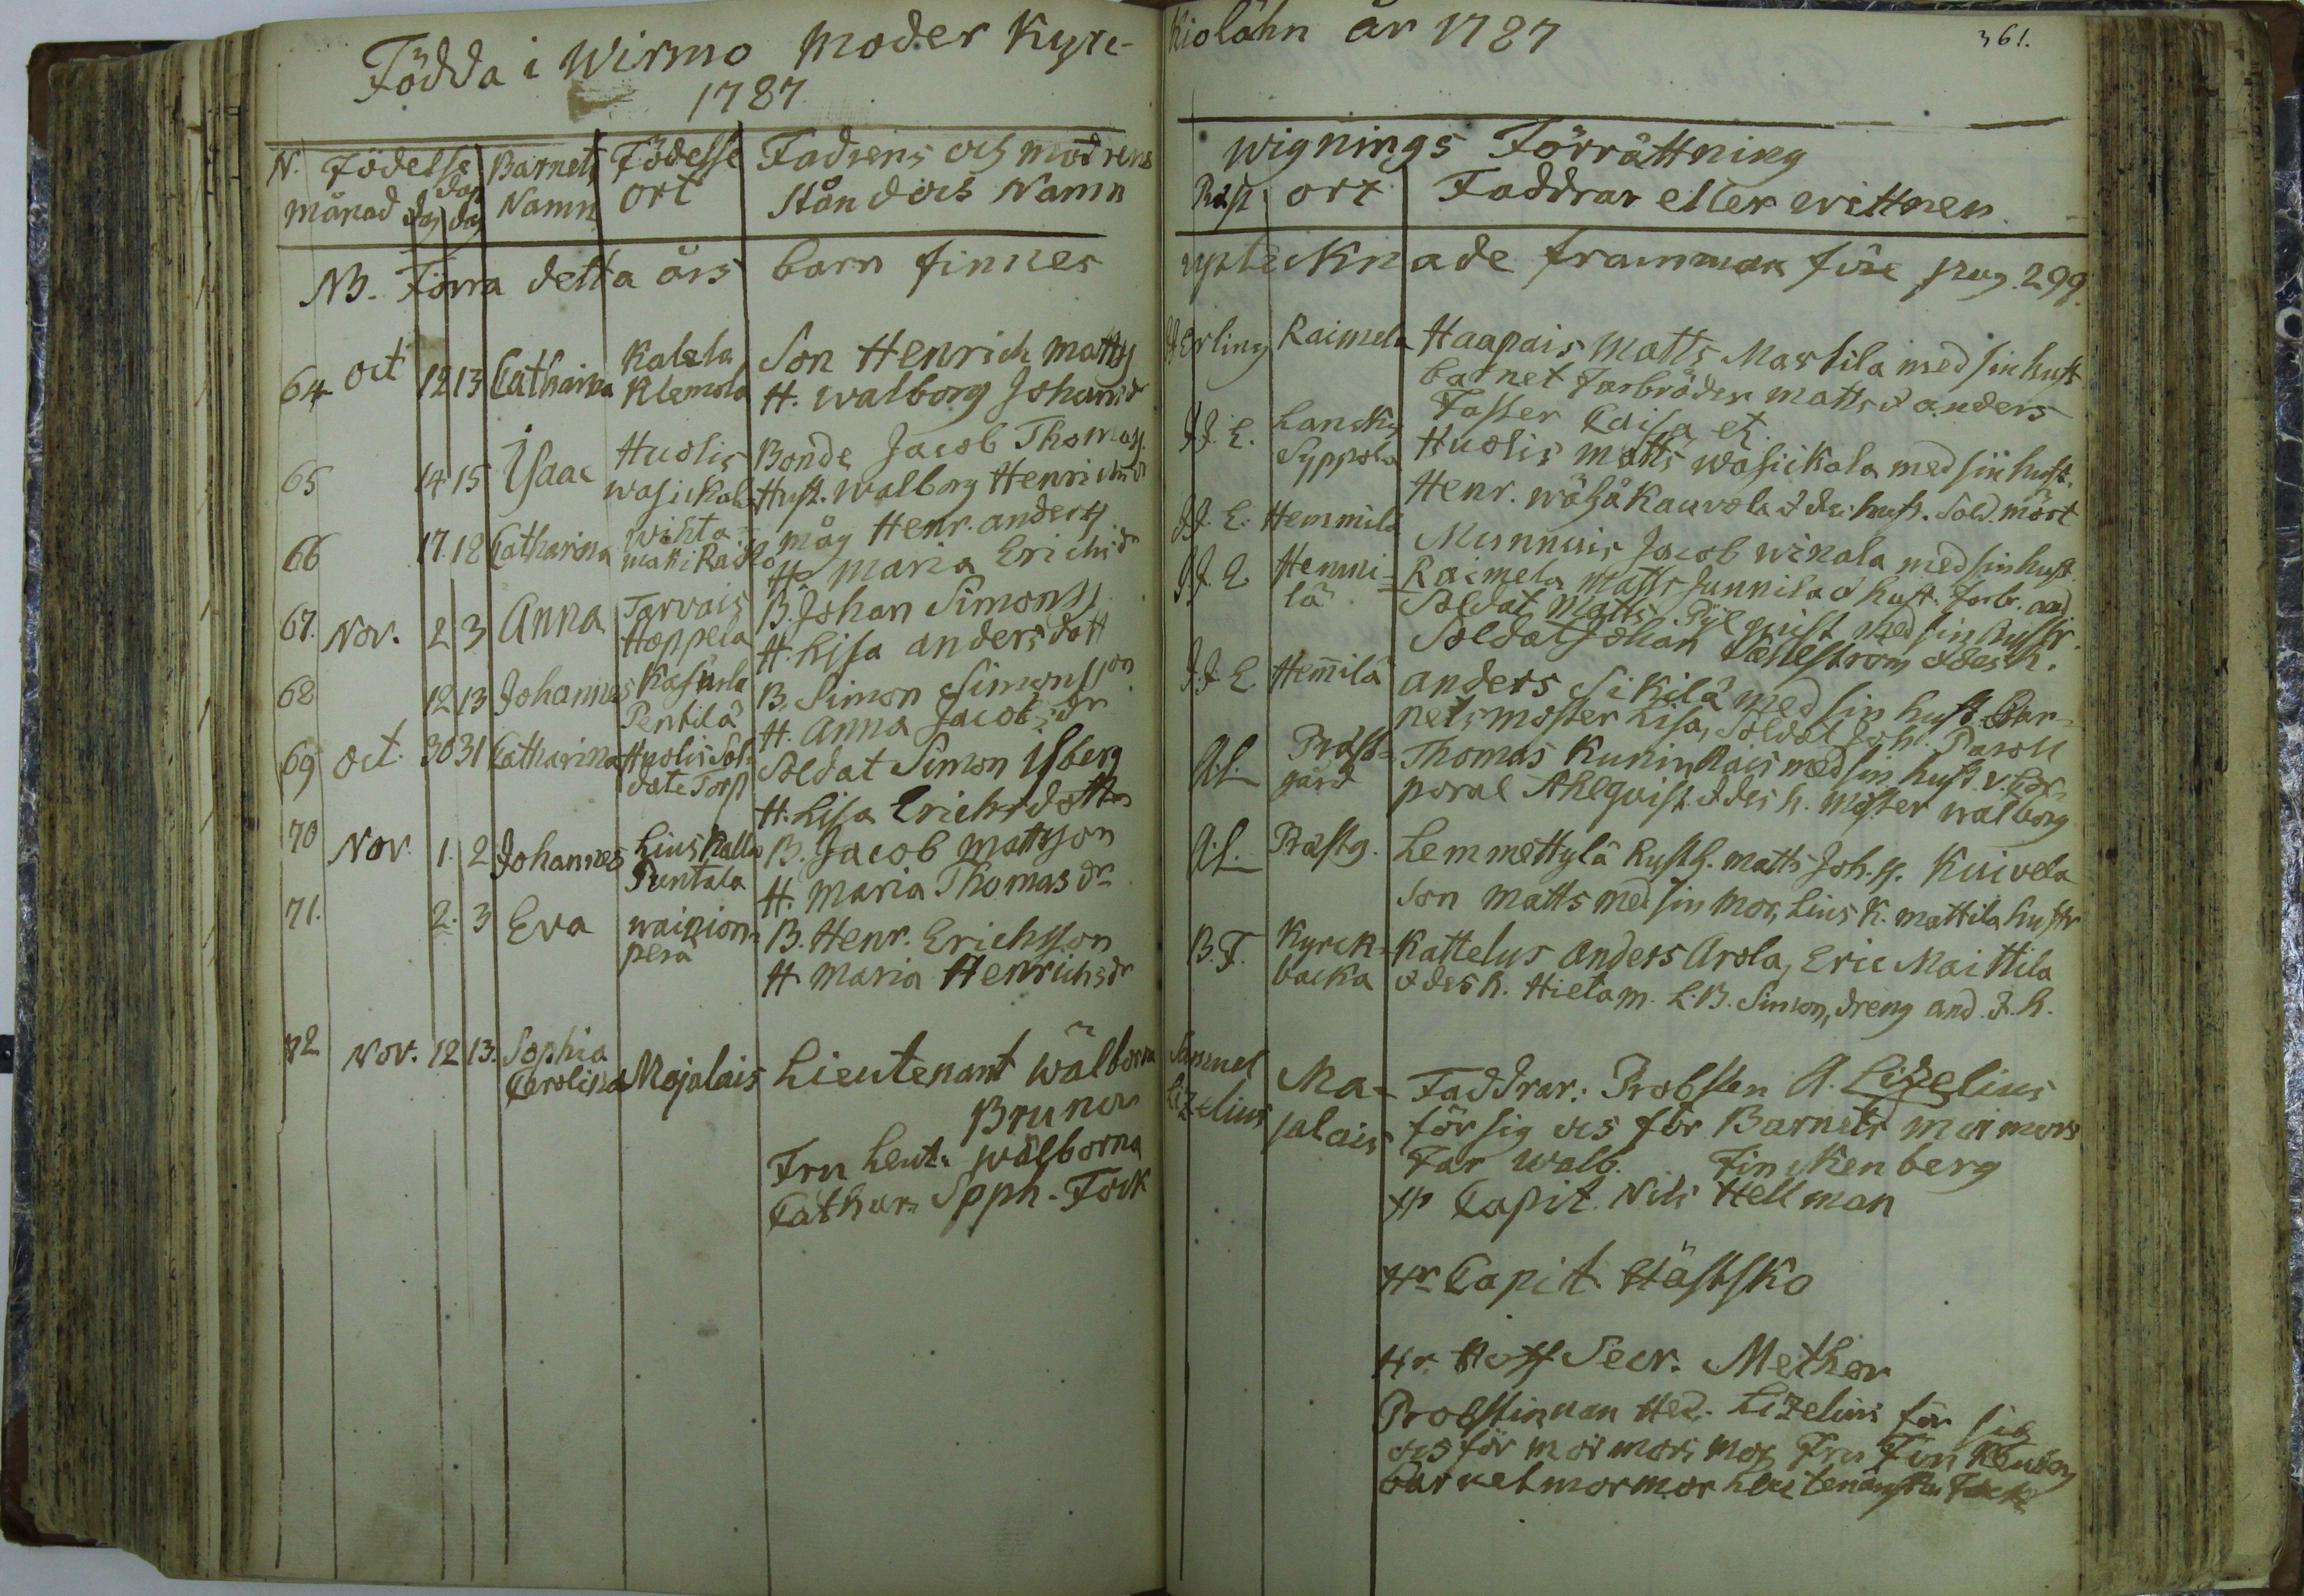 Födda i Wirmo Moder Kyrc-
kiolähn år 1787
361.
1787
N. Födelse Barnets Födelse Fadrens och modrens
månad dag dag dop Namn ort Stånd och Namn
wignings Förrättning
Präst ort Faddrar eller wittnen.
NB. Förra detta års barn finnes
upteknade framman före pag. 299.
64 Oct 12 13 Catharina Kalela Klemola Son Henrich Matts
H. Walborg Johansdr
Erling Raimela Haapais Matts Mastila med sin hust
barnet farbröder matts & anders
Faster Caisa etc.
65 14 15 Isaac Huolis wasickala Bonde Jacob Thomass.
Hust. Walborg Henrichsdr
J.J.E. Lancky Syppola Huolis Matts wasickala med sin hust.
Henr. wähäkauvola & des hust. Sold. Mört
66 17. 18 Catharina wihta mäki Raisko måg Henr. anderss
H. Maria Erichsdr
J.J.E. Hemmilä Munnuis Jacob winala med sin hust.
67. Nov. 2 3 Anna Tarvais Hoppela B. Johan Simonss
H. Lisa andersdott
J.J.E. Hemmi-
lä Raimela Matts Junnila & hust. farb. and
Soldat Matts Pijlquist med sin hustr.
Soldat Johan & des h.
68 12 13 Johannes Kasurla Pentilä B. Simon Simonsson
H. Anna Jacobsdr
J.J.E. Hemilä anders Sikilä med sin hust. Bar-
nets moster Lisa, Soldat Joh. Paroll
69 Oct. 30 31 Catharina Huolis Sol-
date Torp Soldat Simon Isberg
H. Lisa Erichsdotter
A.L. Präst-
gård Thomas Kuninkais med sin hust. v. Cor-
poral Ahlqvist & des h. Moster walborg
70 Nov. 1. 2 Johannes Lius Kalla Puntala B. Jacob Mattsson
H. Maria Thomasdr
A.L. Prästg. Lemmettylä Rusth. Matts Joh. s. Kuivela
Son Matts med sin mor, Lius K. Mattila hustr
71. 2. 3 Eva wainion-
perä B. Henr. Erichsson
H. Maria Henrichsdr
B.F. Kyrck-
backa Kattelus Anders Arola, Eric Maittila
& des h. Hietam. L.B. Simon, dreng and. & h.
72 Nov. 12 13. Sophia Carolina Majalais Lieutenant wälborna
Bruner
Fru Leut: wälborna
Cathar. Soph. Fock
Samuel
Lizelius Ma-
jalais Faddrar: Probsten A. Lizelius
för sig och för Barnets mormors
Far walb. Finckenberg
Hr Capit. Nils Hellman
Hr Capit. Hästsko
Hr. Hoff Secr. Mether
Probstinnan Hed. Lizelius för sig
och för mormors mor Fru Finkenberg
barnets mormor Leutenanskan Fock